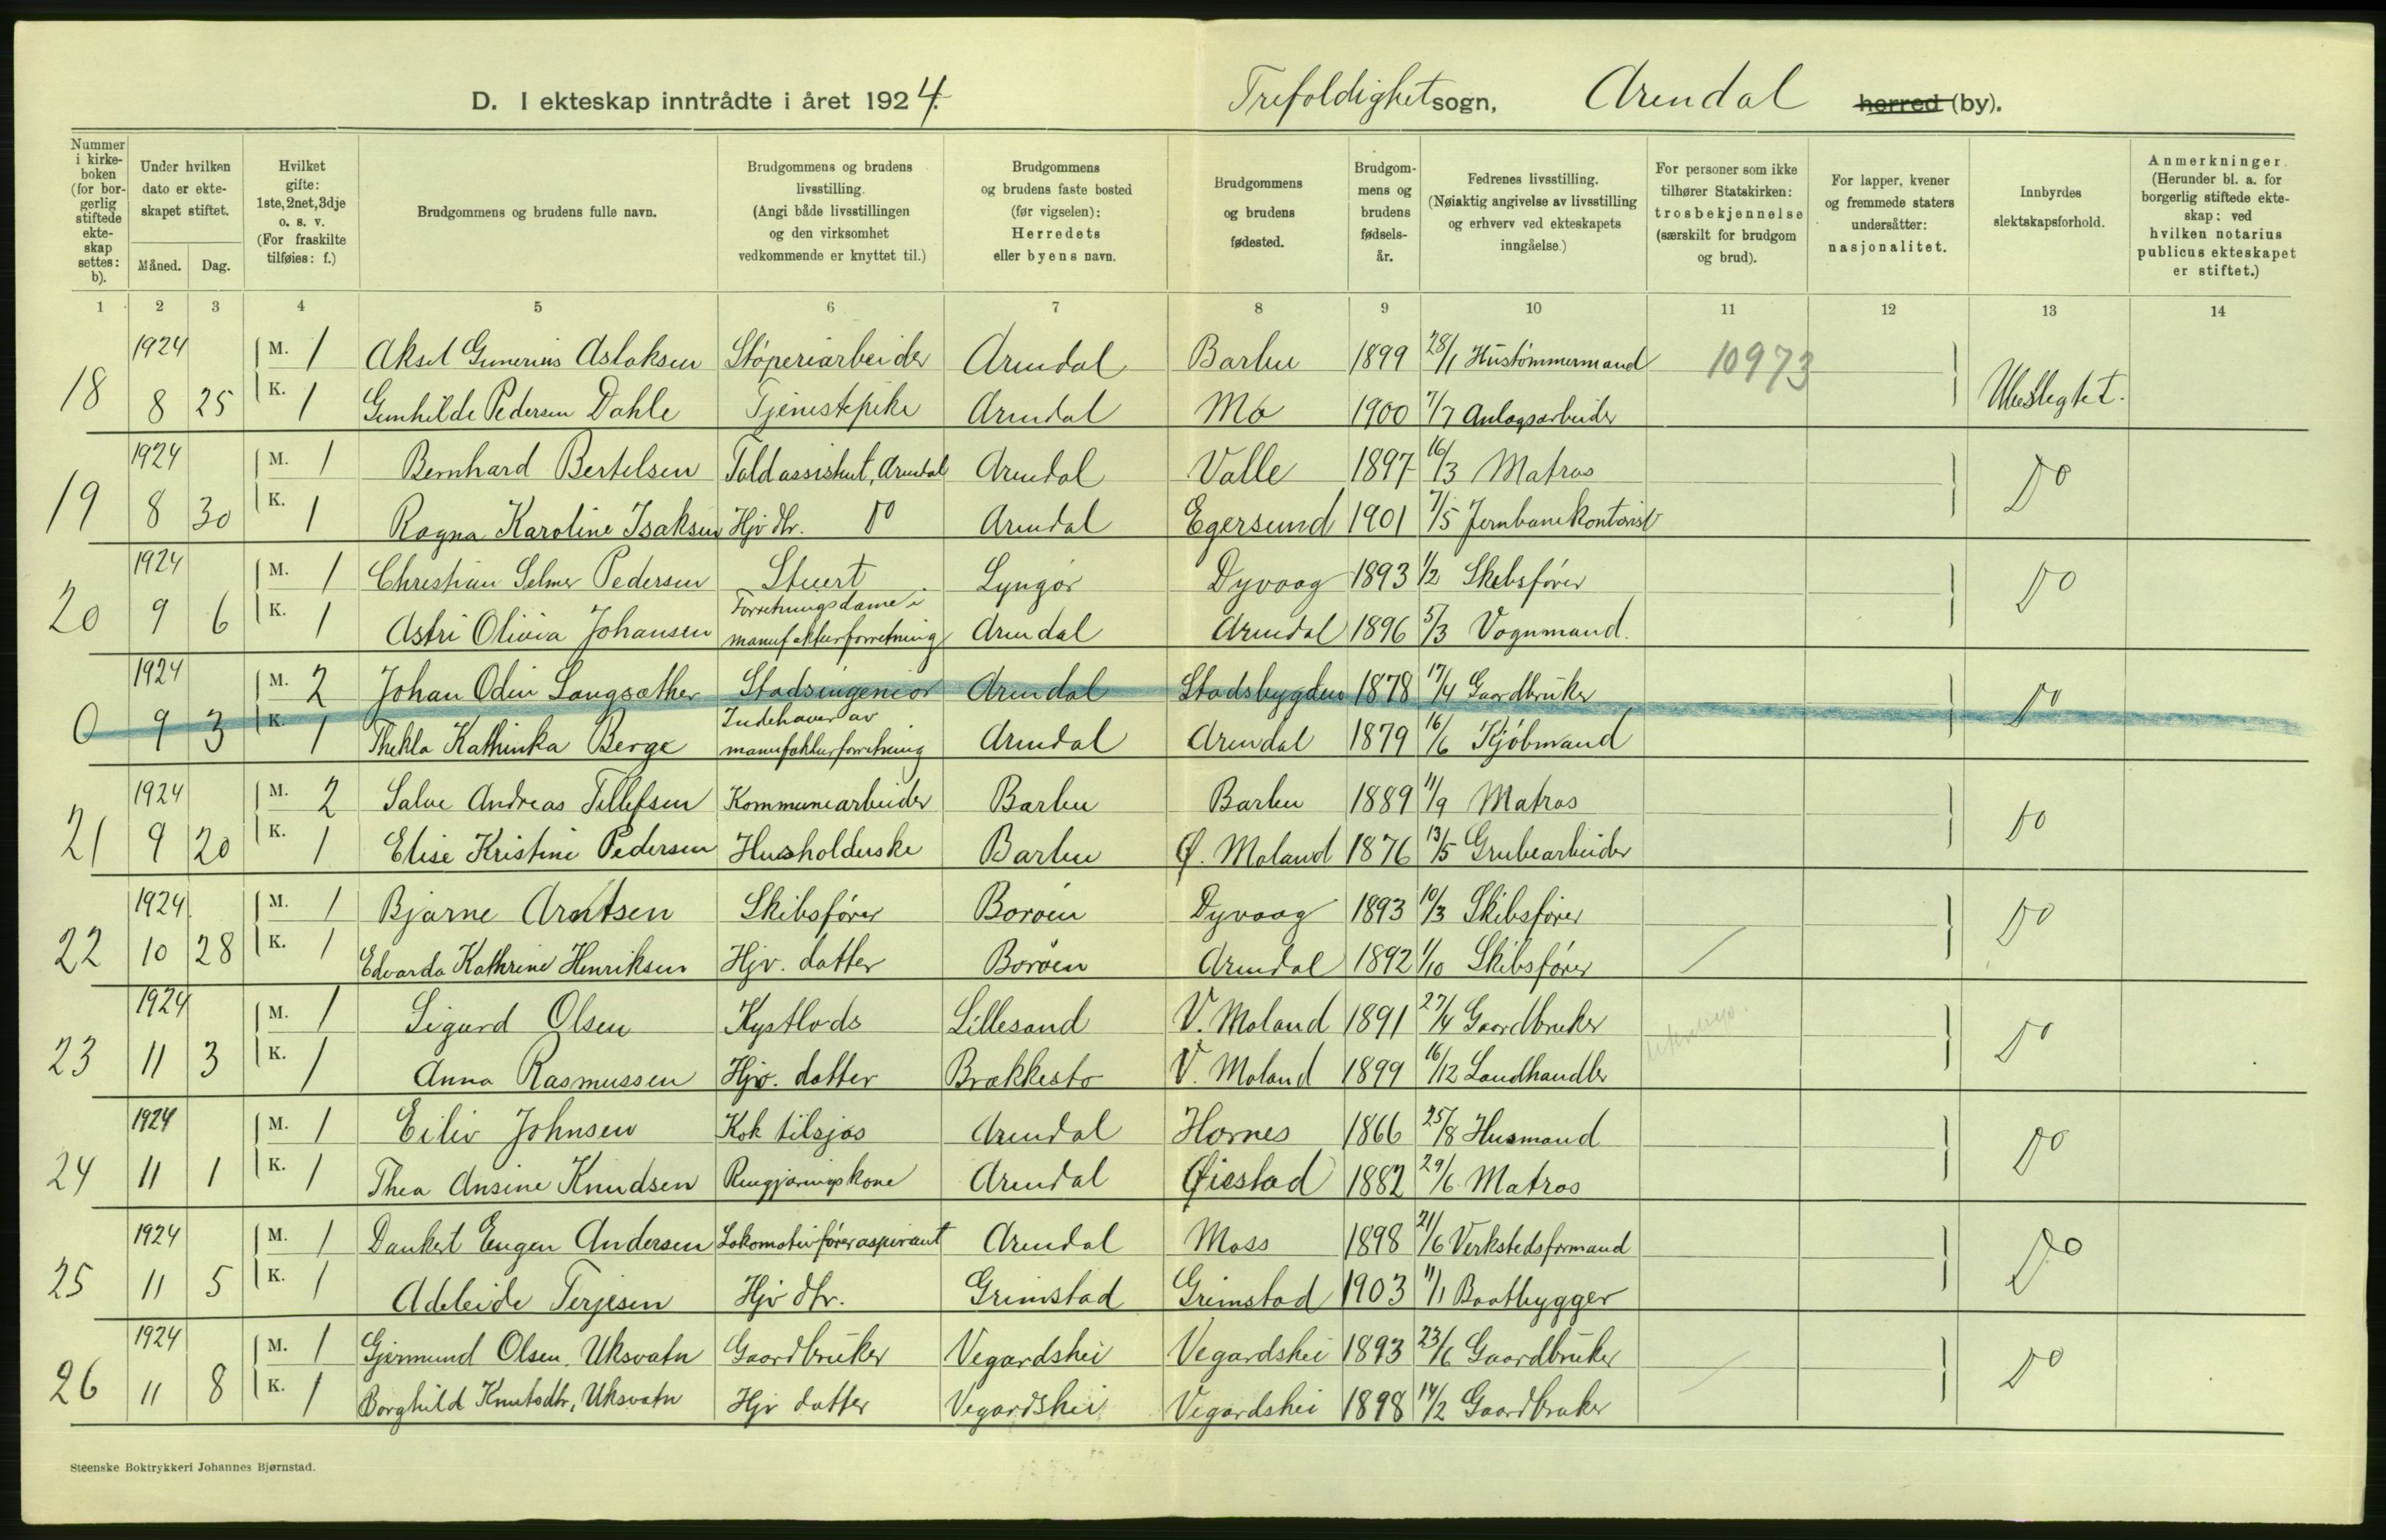 D. I ekteskap inntrådte i året 1924. Trefoldighet sogn, Arendal herred (by).
Nummer i kirkeboken (for borgerlig stiftede ekteskap settes: b).
Under hvilken dato er ekteskapet stiftet.
Måned. Dag.
Hvilket gifte: 1ste, 2net, 3dje o. s. v. (For fraskilte tilføies: f.)
Brudgommens og brudens fulle navn.
Brudgommens og brudens livsstilling. (Angi både livsstillingen og den virksomhet vedkommende er knyttet til.)
Brudgommens og brudens faste bosted (før vigselen): Herredets eller byens navn.
Brudgommens og brudens fødested.
Brudgommens og brudens fødselsår.
Fedrenes livsstilling. (Nøiaktig angivelse av livsstilling og erhverv ved ekteskapets inngåelse.)
For personer som ikke tilhører Statskirken: trosbekjennelse (særskilt for brudgom og brud).
For lapper, kvener og fremmede staters undersåtter: nasjonalitet.
Innbyrdes slektskapsforhold.
Anmerkninger. (Herunder bl. a. for borgerlig stiftede ekteskap: ved hvilken notarius publicus ekteskapet er stiftet.)
1 2 3 4 5 6 7 8 9 10 11 12 13 14
1924 M. 1 Aksel Gunerius Aslaksen Støperiarbeider Arendal Barbu 1899 28/1 Hustømmermand 10973
18 8 25 K. 1 Gunhilde Pedersen Dahle Tjenestepike Arendal Mo 1900 7/7 Anlægsarbeider Ubeslegtet.
1924 M. 1 Bernhard Bertelsen Toldassistent, Arendal Arendal Valle 1897 16/3 Matros
19 8 30 K. 1 Ragna Karoline Isaksen Hjv dtr. Do Arendal Egersund 1901 7/5 Jernbanekontorist Do
1924 M. 1 Christian Selmer Pedersen Stuert Lyngør Dyvaag 1893 1/2 Skibsfører
20 9 6 K. 1 Astri Olivia Johansen Forretningsdame i manufakturforretning Arendal Arendal 1896 5/3 Vognmand. Do
1924 M. 2 Johan Odin Langsæther Stadsingeniør Arendal Stadsbygden 1878 17/4 Gaardbruker
0 9 3 K. 1 Thekla Kathinka Berge Indehaver av manufakturforretning Arendal Arendal 1879 16/6 Kjøbmand Do
1924 M. 2 Salve Andreas Tellefsen Kommunearbeider Barbu Barbu 1889 11/9 Matros
21 9 20 K. 1 Elise Kristine Pedersen Husholderske Barbu Ø. Moland 1876 13/5 Grubearbeider Do
1924 M. 1 Bjarne Arntsen Skibsfører Borøen Dyvaag 1893 10/3 Skibsfører
22 10 28 K. 1 Edvarda Kathrine Henriksen Hjv. datter Borøen Arendal 1892 1/10 Skibsfører Do
1924 M. 1 Sigurd Olsen Kystlods Lillesand V. Moland 1891 27/4 Gaardbruker
23 11 3 K. 1 Anna Rasmussen Hjv. datter Brækkestø V. Moland 1899 16/12 Landhandler Do
1924 M. 1 Eiliv Johnsen Kok tilsjøs Arendal Hornes 1866 25/8 Husmand
24 11 1 K. 1 Thea Ansine Knudsen Rengjøringskone Arendal Øiestad 1882 29/6 Matros Do
1924 M. 1 Dankert Eugen Andersen Lokomotivføreraspirant Arendal Moss 1898 21/6 Verkstedsformand
25 11 5 K. 1 Adeleide Terjesen Hjv dtr. Grimstad Grimstad 1903 11/1 Baatbygger Do
1924 M. 1 Gjermund Olsen Uksvatn Gaardbruker Vegardshei Vegardshei 1893 23/6 Gaardbruker
26 11 8 K. 1 Borghild Knutsdtr, Uksvatn Hjv datter Vegardshei Vegardshei 1898 14/2 Gaardbruker Do
Steenske Boktrykkeri Johannes Bjørnstad.